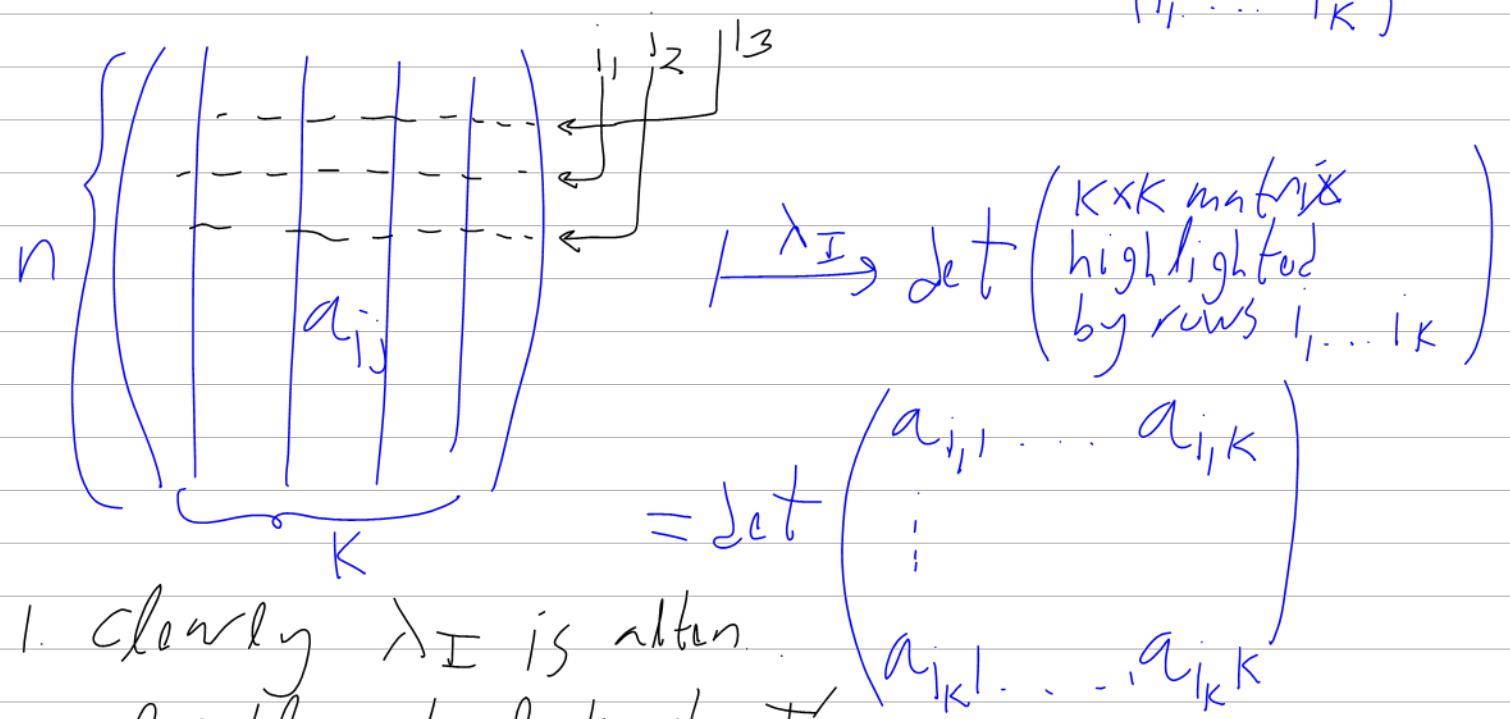 (i₁, ... i_K)
i₁ i₂ i₃
n
a_ij
K
|—λ_I→ det ( K×K matrix
highlighted
by rows i₁, ... i_K )
= det ( a_{i₁1} .... a_{i₁K}
⋮
a_{i_K1} .... a_{i_KK} )
1. Clearly λ_I is altern.